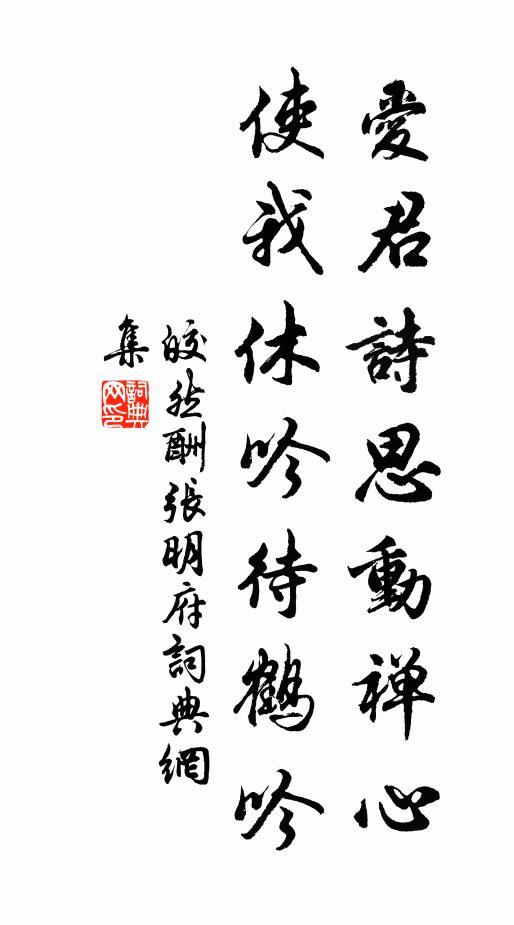 愛君詩思動禅心
使我休吟待鶴吟
皎然酬張明府詞典網
集
詞典
网印